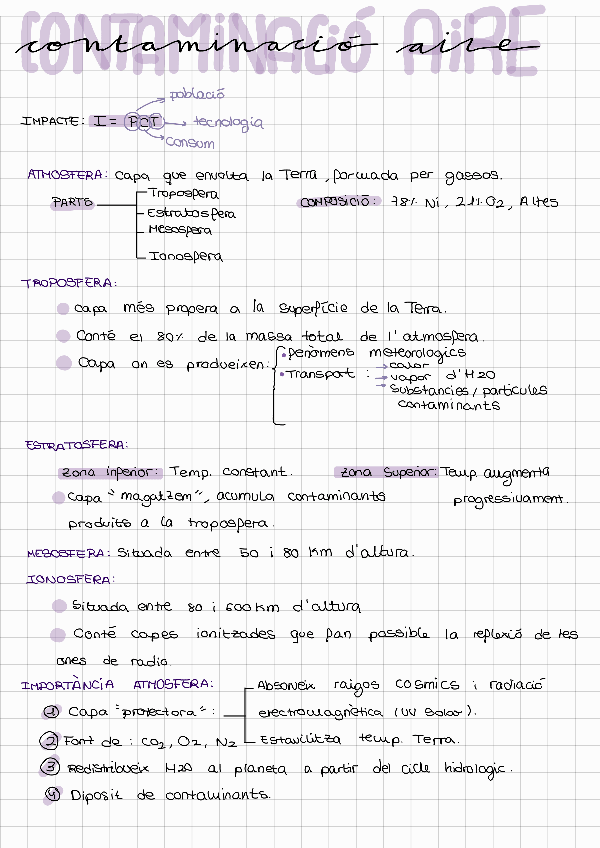 CONTAMINACIÓ AIRE
contaminació aire
població
IMPACTE: I = PCT → tecnologia
consum
ATMOSFERA: capa que envolta la Terra, formada per gassos.
PARTS
Troposfera
Estratosfera
Mesosfera
Ionosfera
COMPOSICIÓ: 78% Ni, 21% O2, Altes
TROPOSFERA:
capa més propera a la superfície de la Terra.
Conté el 80% de la massa total de l'atmosfera.
Capa on es produeixen:
• fenòmens meteorologics
• Transport : → calor
→ vapor d'H2O
→ Substancies / partícules
contaminants
ESTRATOSFERA:
zona inferior: Temp. constant. zona Superior: Temp augmenta
progressivament.
Capa "magatzem", acumula contaminants
produits a la troposfera.
MESOSFERA: Situada entre 50 i 80 Km d'altura.
IONOSFERA:
Situada entre 80 i 600 Km d'altura
Conté capes ionitzades que fan possible la reflexió de les
ones de radio.
IMPORTÀNCIA ATMOSFERA:
① Capa "protectora":
Absorveix raigos cosmics i radiació
electromagnètica (UV Solar).
Estavilitza temp. Terra.
② Font de : CO2, O2, N2
③ Redistribueix H2O al planeta a partir del cicle hidrologic.
④ Diposit de contaminants.